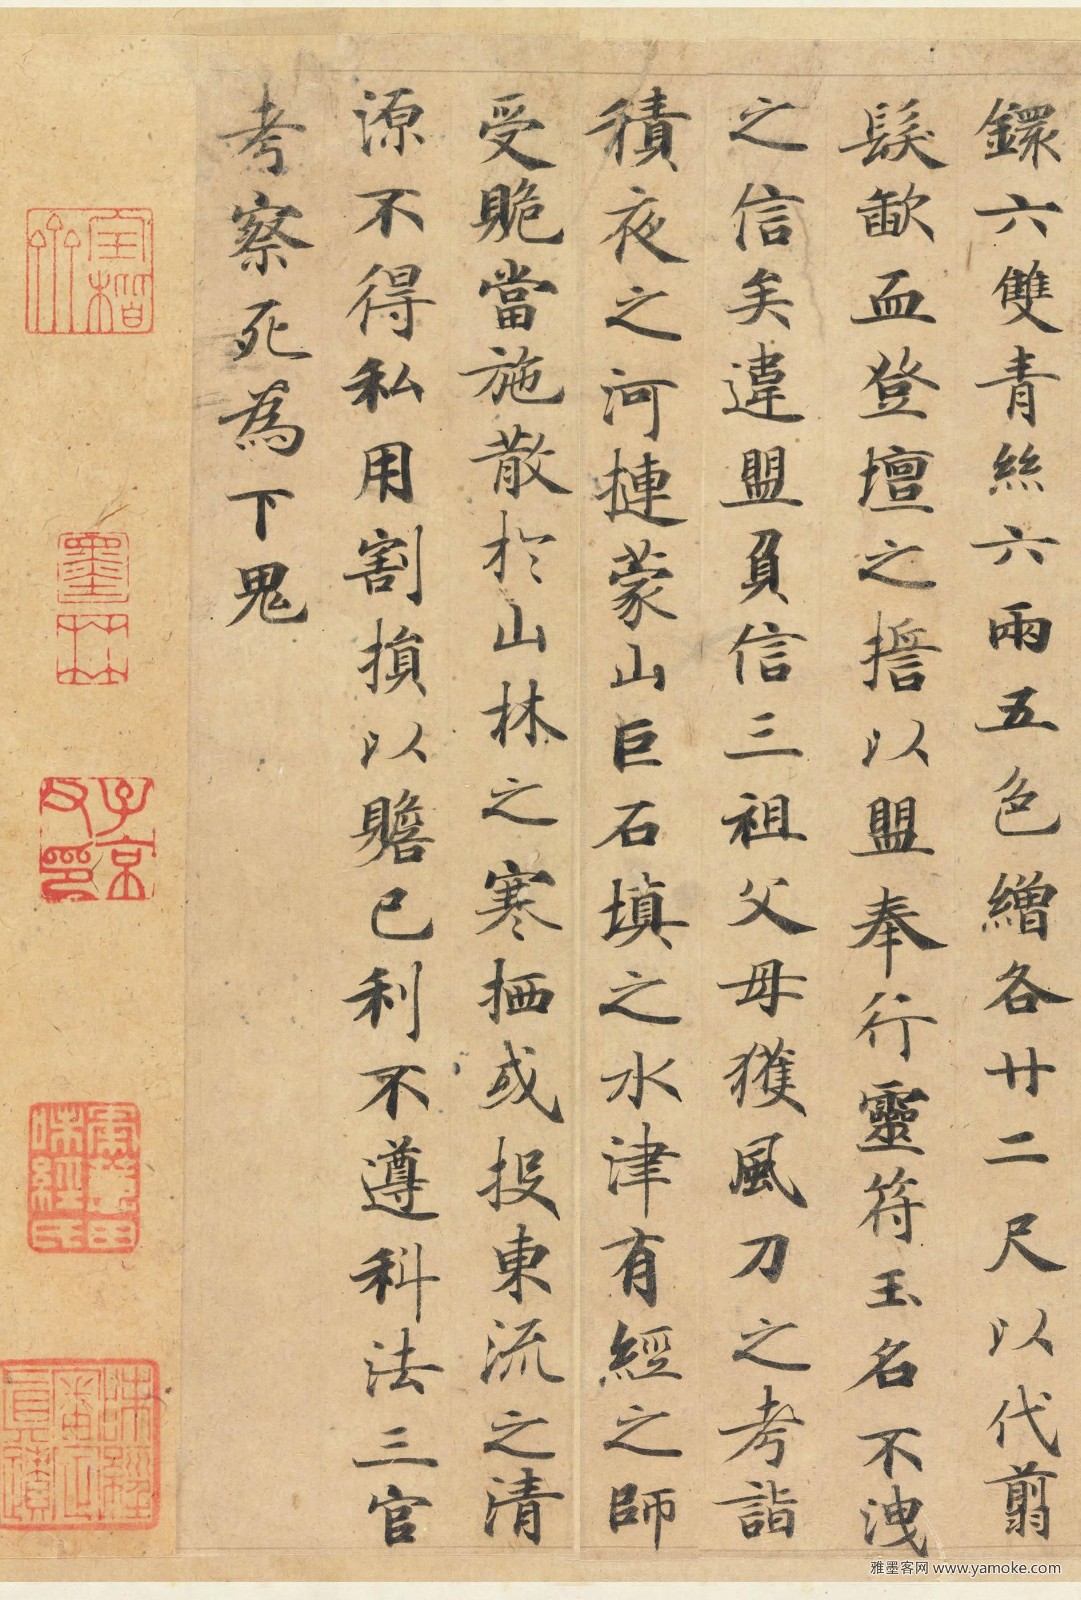 鐶六雙青絲六兩五色繒各廿二尺以代翦
髮歃血登壇之擔以盟奉行靈符玉名不洩
之信矣違盟負信三祖父母獲風刀之考詣
積夜之河摙蒙山巨石填之水津有經之師
受賄當施散於山林之寒栖或投東流之清
源不得私用割損以贍己利不遵科法三官
考察死為下鬼
墨林
子京父印
雅墨客网 www.yamoke.com